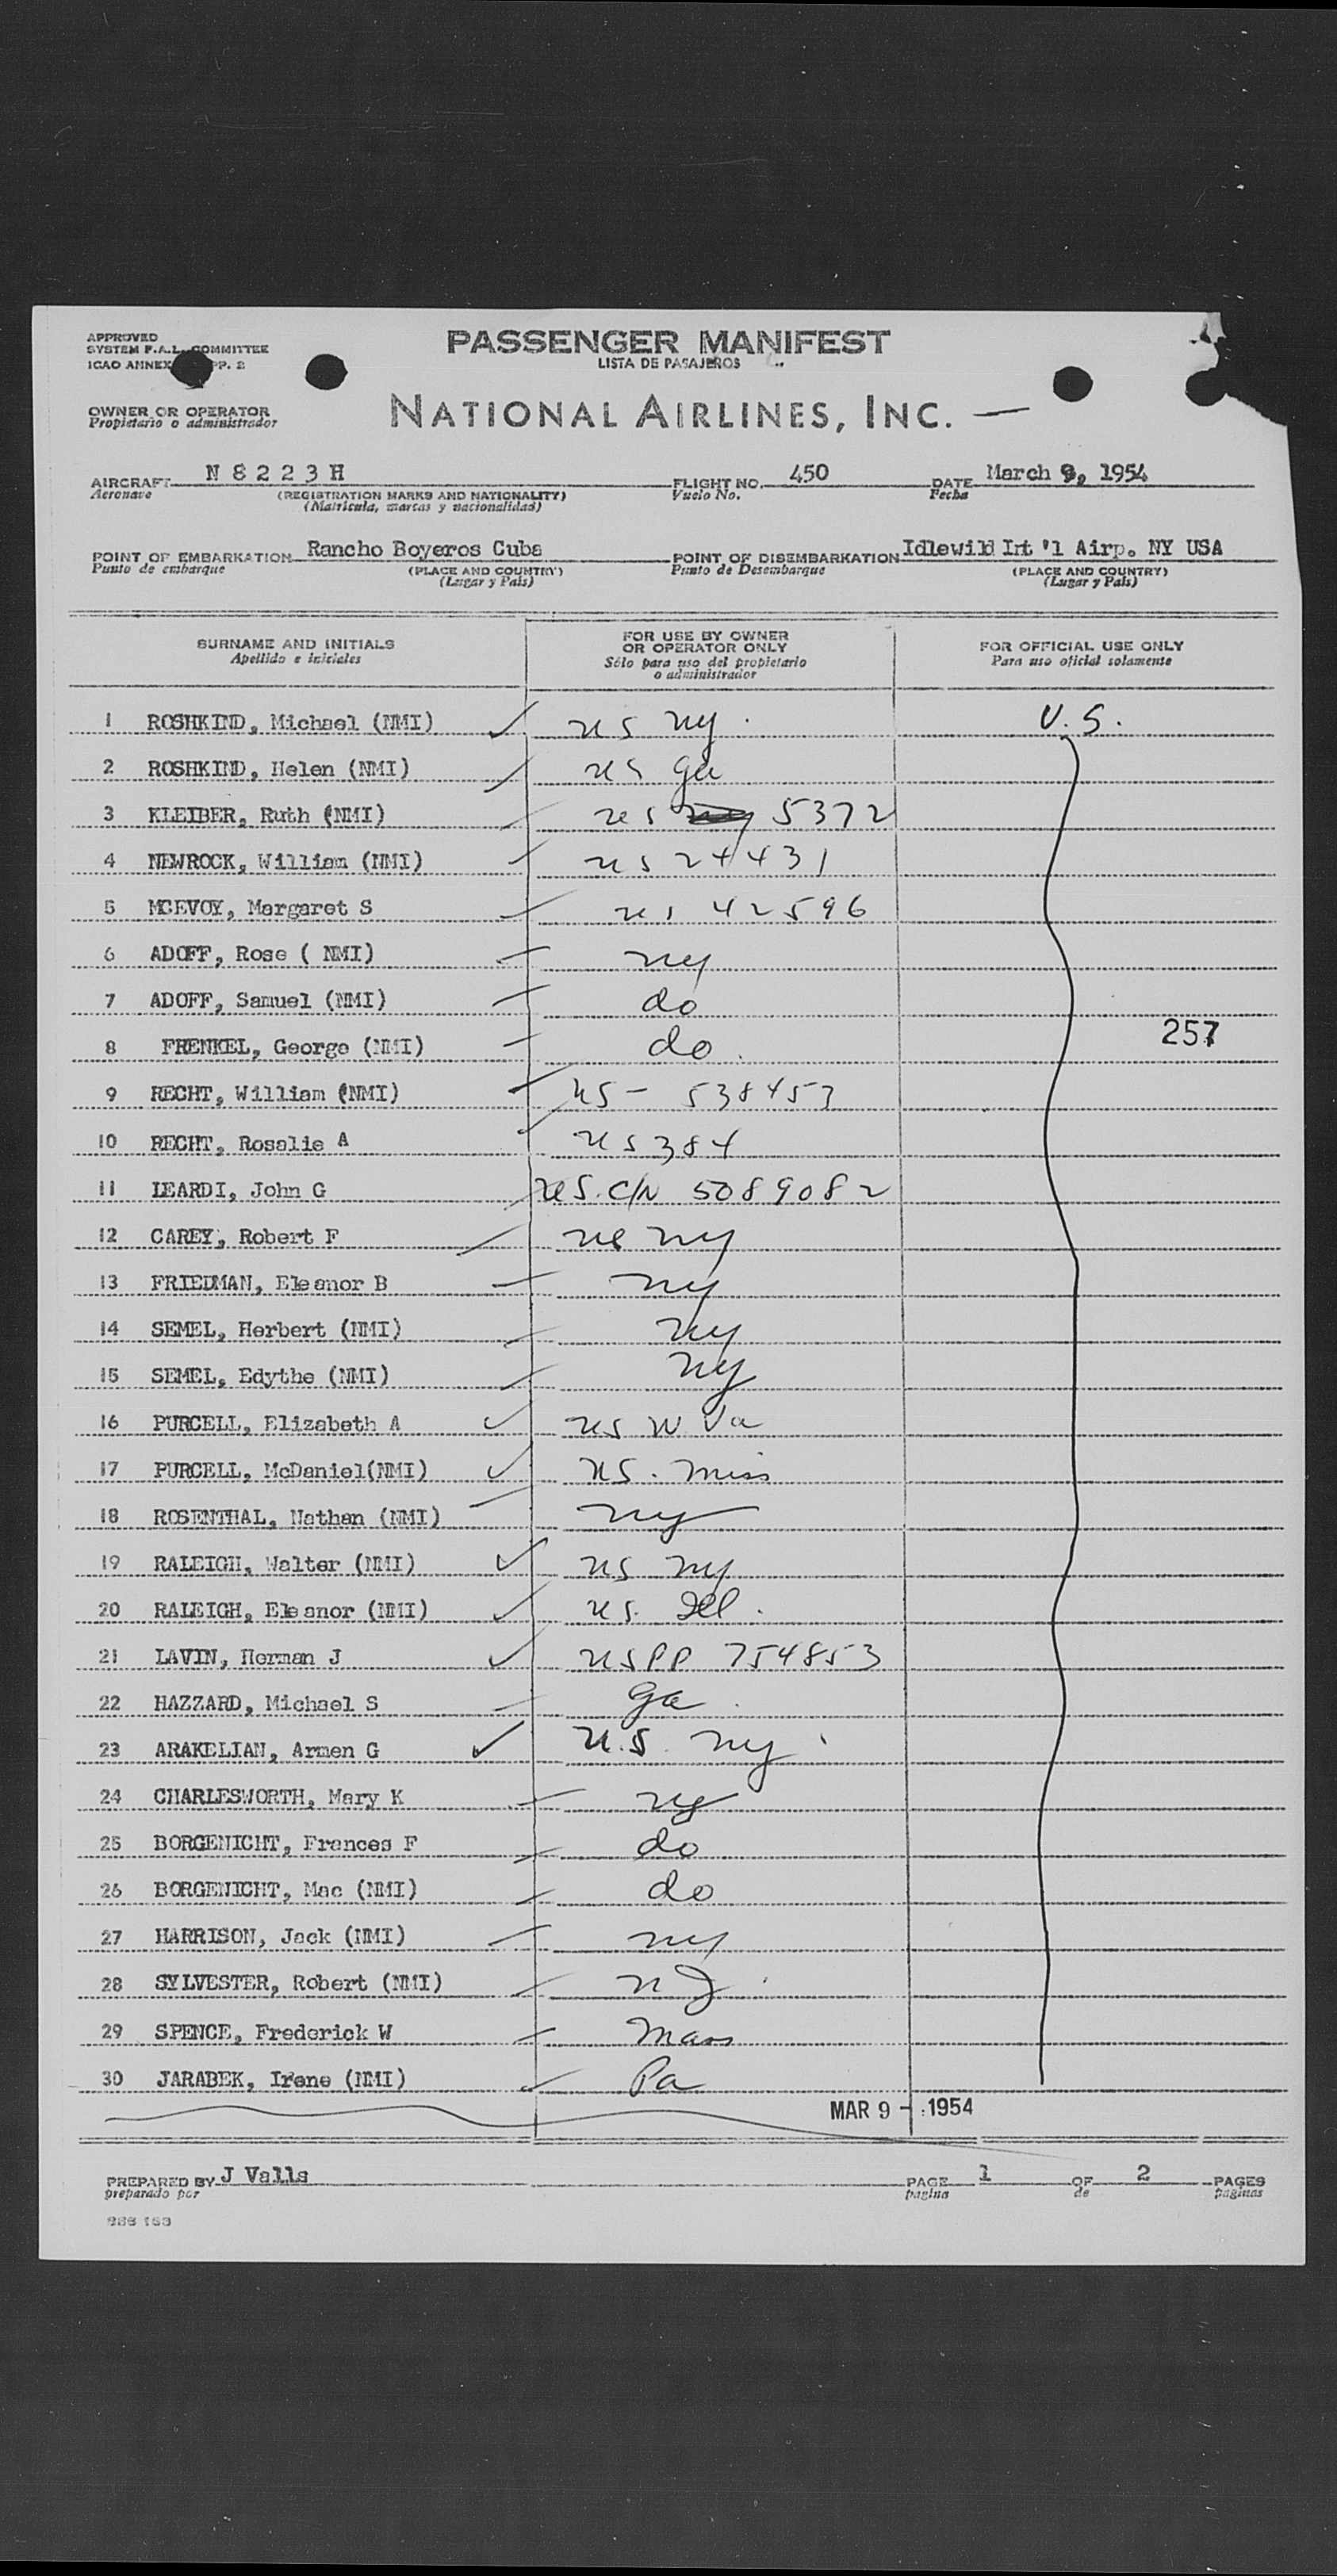 APPROVED
SYSTEM F.A.L. COMMITTEE
ICAO ANNEX PP. 2
PASSENGER MANIFEST
LISTA DE PASAJEROS
OWNER OR OPERATOR
Propietario o administrador
NATIONAL AIRLINES, INC.
AIRCRAFT N 8 2 2 3 H FLIGHT NO. 450 DATE March 9, 1954
Aeronave (REGISTRATION MARKS AND NATIONALITY) Vuelo No. Fecha
(Matricula, marcas y nacionalidad)
POINT OF EMBARKATION Rancho Boyeros Cuba POINT OF DISEMBARKATION Idlewild Int'l Airp. NY USA
Punto de embarque (PLACE AND COUNTRY) Punto de Desembarque (PLACE AND COUNTRY)
(Lugar y Pais) (Lugar y Pais)
SURNAME AND INITIALS FOR USE BY OWNER OR OPERATOR ONLY FOR OFFICIAL USE ONLY
Apellido e iniciales Sólo para uso del propietario o administrador Para uso oficial solamente
1 ROSHKIND, Michael (NMI) US NY. U.S.
2 ROSHKIND, Helen (NMI) US Ga
3 KLEIBER, Ruth (NMI) US 5372
4 NEWROCK, William (NMI) US 24431
5 MCEVOY, Margaret S US 42596
6 ADOFF, Rose ( NMI) NY
7 ADOFF, Samuel (NMI) do
8 FRENKEL, George (NMI) do. 257
9 RECHT, William (NMI) US - 538453
10 RECHT, Rosalie A US 384
11 LEARDI, John G US. C/N 5089082
12 CAREY, Robert F US NY
13 FRIEDMAN, Eleanor B NY
14 SEMEL, Herbert (NMI) NY
15 SEMEL, Edythe (NMI) NY
16 PURCELL, Elizabeth A US W Va
17 PURCELL, McDaniel(NMI) US. Miss
18 ROSENTHAL, Nathan (NMI) NY
19 RALEIGH, Walter (NMI) US NY
20 RALEIGH, Eleanor (NMI) US. Ill.
21 LAVIN, Herman J US PP 754853
22 HAZZARD, Michael S Ga.
23 ARAKELIAN, Armen G U.S. NY
24 CHARLESWORTH, Mary K NY
25 BORGENICHT, Frances F do
26 BORGENICHT, Mac (NMI) do
27 HARRISON, Jack (NMI) NY
28 SYLVESTER, Robert (NMI) NJ.
29 SPENCE, Frederick W Mass
30 JARABEK, Irene (NMI) Pa
MAR 9 - 1954
PREPARED BY J Valls PAGE 1 OF 2 PAGES
preparado por pagina de paginas